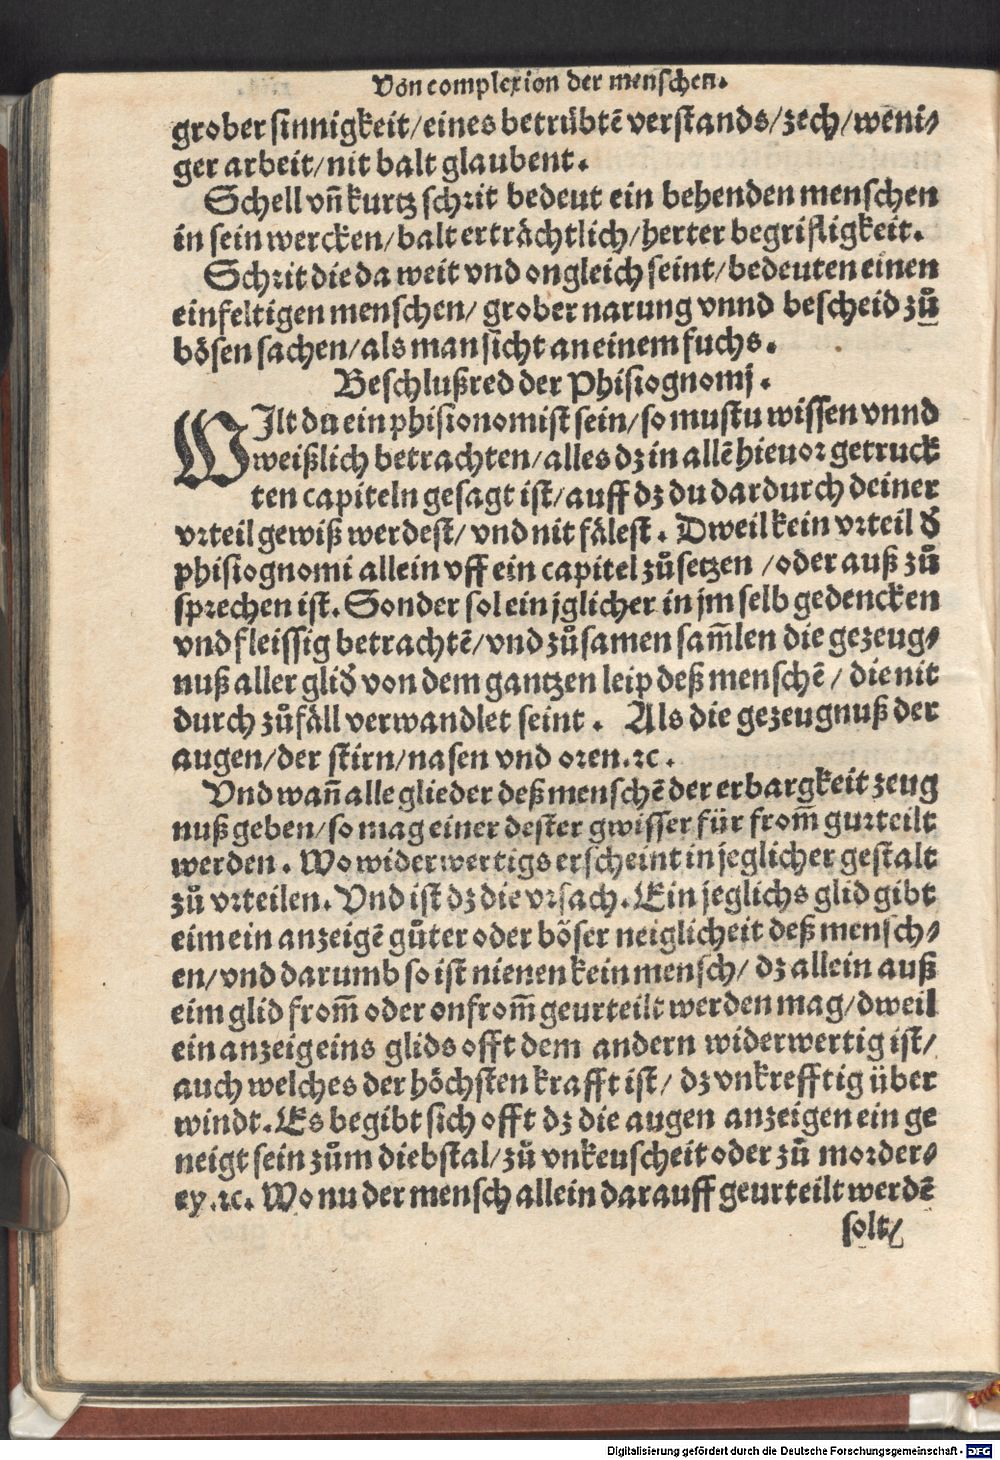 Von complexion der menschen.
grober sinnigkeit/eines betrübtẽ verstands/zech/weni-
ger arbeit/nit balt glaubent.
Schell vñ kurtz schrit bedeut ein behenden menschen
in sein wercken/balt erträchtlich/herter begrifligkeit.
Schrit die da weit vnd ongleich seint/bedeuten einen
einfeltigen menschen/ grober narung vnnd bescheid zů
bösen sachen/als man sicht an einem fuchs.
Beschlußred der Phisiognomj.
WIlt du ein phisionomist sein/so mustu wissen vnnd
weißlich betrachten/alles dz in allẽ hieuor getruck
ten capiteln gesagt ist/auff dz du dardurch deiner
vrteil gewiß werdest/ vnd nit fälest. Dweil kein vrteil d̓
phisiognomi allein vff ein capitel zů setzen /oder auß zů
sprechen ist. Sonder sol ein jglicher in jm selb gedencken
vnd fleissig betrachtẽ/vnd zůsamen sam̃len die gezeug-
nuß aller glid̓ von dem gantzen leip deß menschẽ/ die nit
durch zůfäll verwandlet seint. Als die gezeugnuß der
augen/der stirn/nasen vnd oren.ꝛc.
Vnd wañ alle glieder deß menschẽ der erbargkeit zeug
nuß geben/so mag einer dester gwisser für from̃ gurteilt
werden. Wo widerwertigs erscheint in jeglicher gestalt
zů vrteilen. Vnd ist dz die vrsach. Ein jeglichs glid gibt
eim ein anzeigẽ gůter oder böser neiglicheit deß mensch-
en/vnd darumb so ist nienen kein mensch/ dz allein auß
eim glid from̃ oder onfrom̃ geurteilt werden mag/dweil
ein anzeig eins glids offt dem andern widerwertig ist/
auch welches der höchsten krafft ist/ dz vnkrefftig über
windt. Es begibt sich offt dz die augen anzeigen ein ge
neigt sein zům diebstal/zů vnkeuscheit oder zů morder-
ey.ꝛc. Wo nu der mensch allein darauff geurteilt werdẽ
solt/
Digitalisierung gefördert durch die Deutsche Forschungsgemeinschaft - DFG